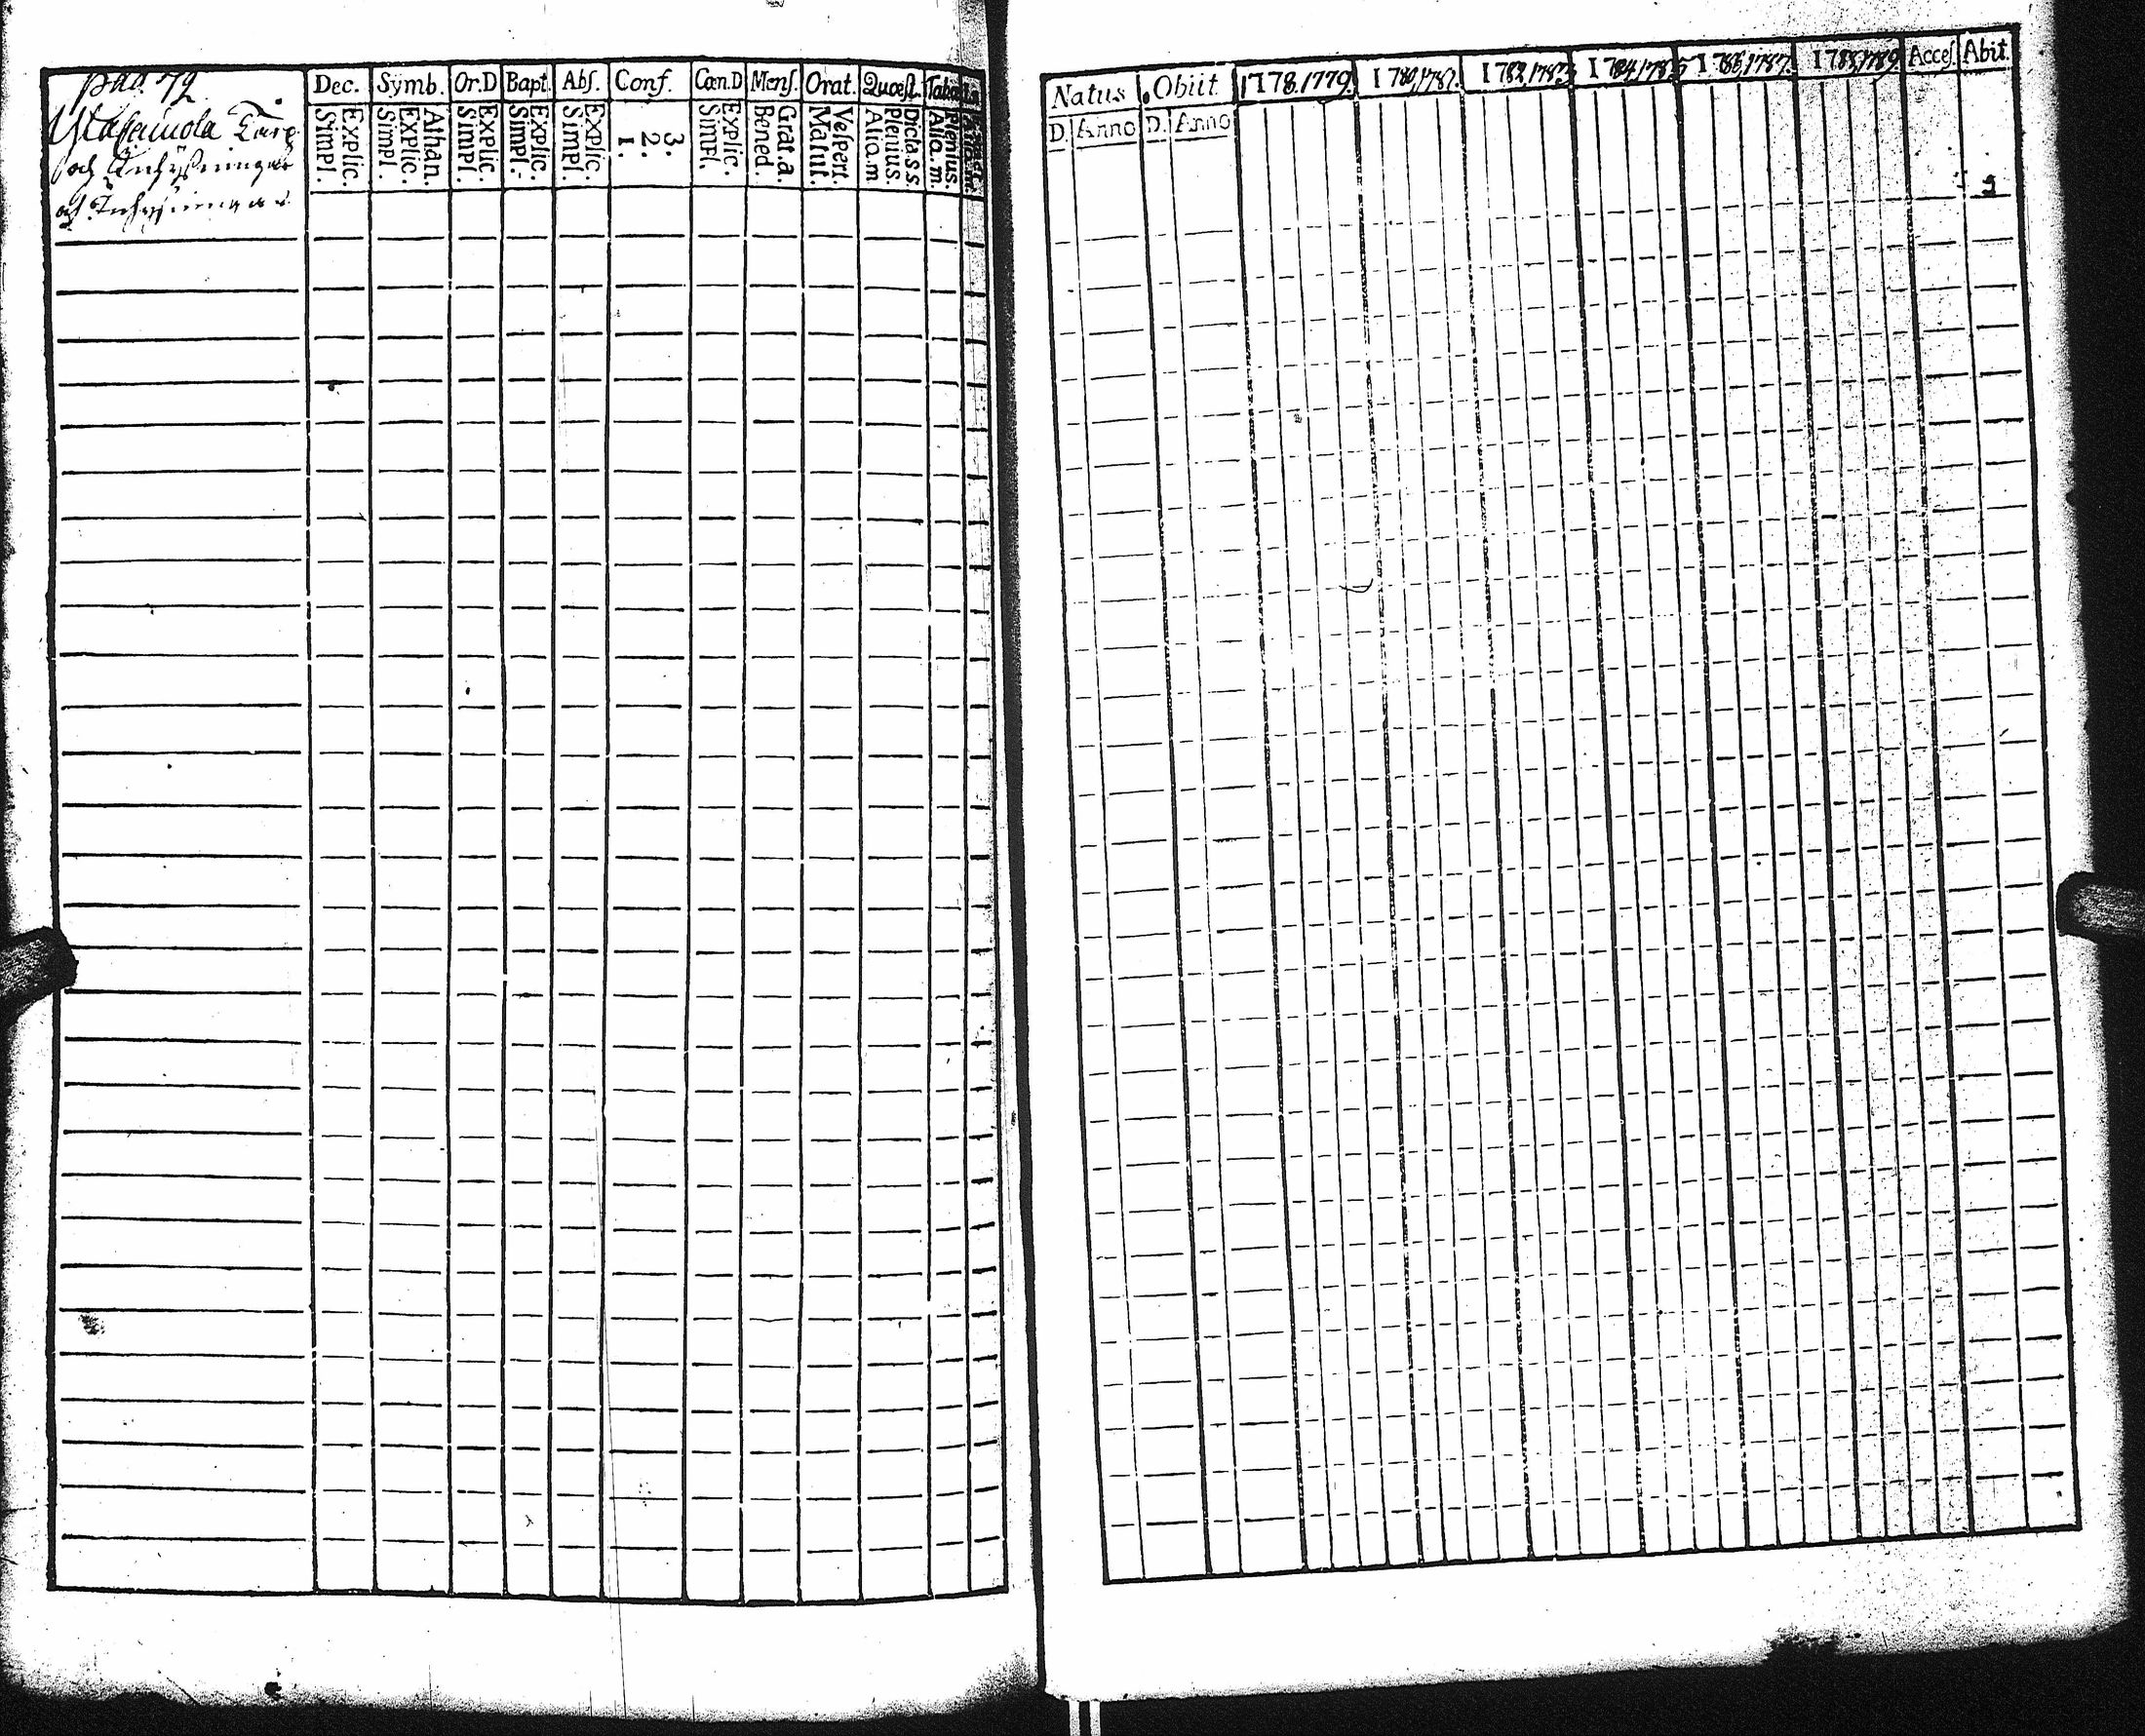 pag. 72
och Inhysningar
Dec. Symb. Or.D Bapt. Abs. Conf. Cœn.D Mens. Orat. Quœst. Tabu
Explic. Simpl.
Athan. Explic. Simpl.
Explic. Simpl.
Explic. Simpl.
Explic. Simpl.
3. 2. 1.
Explic. Simpl.
Grat.a. Bened.
Vespert. Matut.
Dicta.s.s. Plenius. Alia.m
Plenius. Alia.m.
Natus Obiit 1778.1779. 1780,1781. 1782,1783 1784,1785 1786,1787. 1788,1789 Acces. Abit.
D. Anno D. Anno